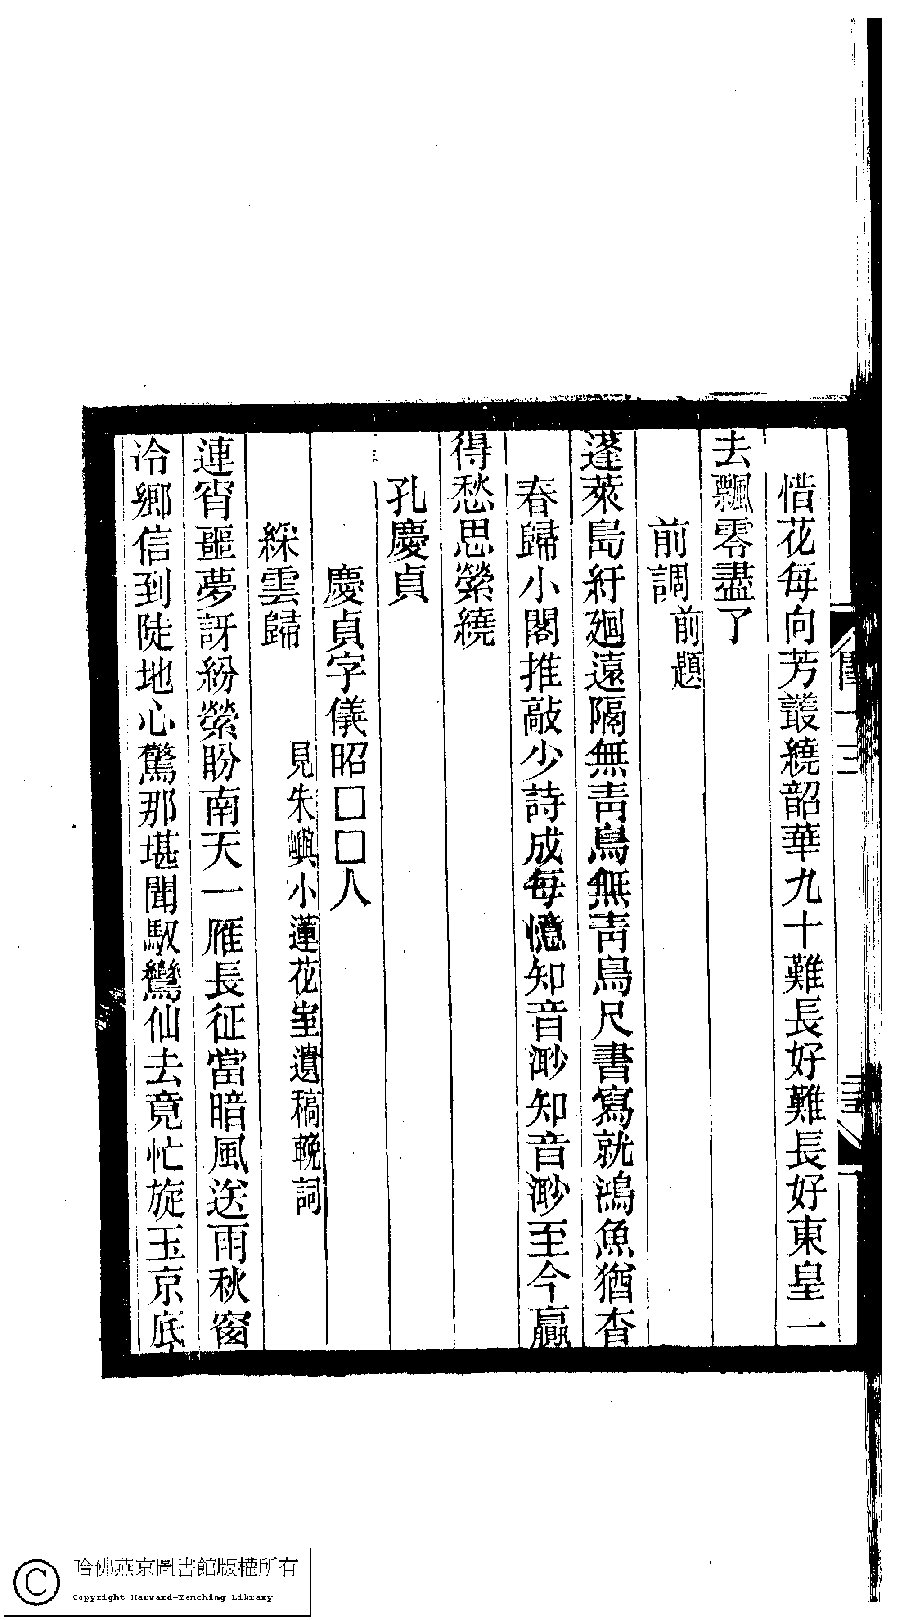 惜花每向芳叢繞韶華九十難長好難長好東皇一
去飄零盡了
前調前題
蓬萊島紆廻遠隔無青鳥無青鳥尺書寫就鴻魚猶杳
春歸小閣推敲少詩成每憶知音渺知音渺至今贏
得愁思縈繞
孔慶貞
慶貞字儀昭囗囗人
綵雲歸
見朱嶼小蓮花室遺稿輓詞
連宵噩夢訝紛縈盼南天一雁長征當暗風送雨秋窗
冷鄉信到陡地心驚那堪聞馭鸞仙去竟忙旋玉京底
閨一
三
哈佛燕京圖書館版權所有
Copyright Harvard-Yenching Library